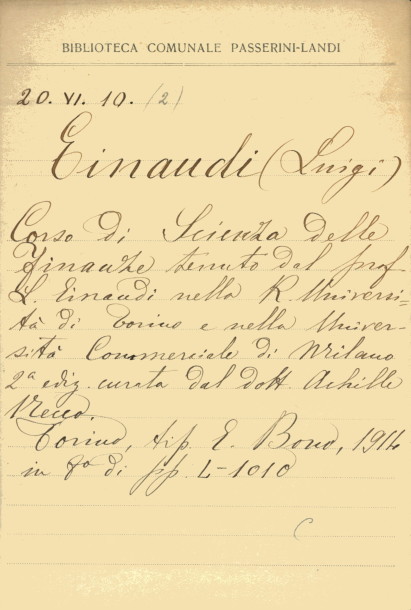 BIBLIOTECA COMUNALE PASSERINI-LANDI
20. VI. 10. (2)
Einaudi (Luigi)
Corso di Scienza delle
Finanze tenuto dal prof.
L. Einaudi nella R. Universi-
tà di Torino e nella Univer-
sità Commerciale di Milano
2ª ediz. curata dal dott. Achille
Torino, tip. E. Bono, 1914
in 8º di pp. L-1010